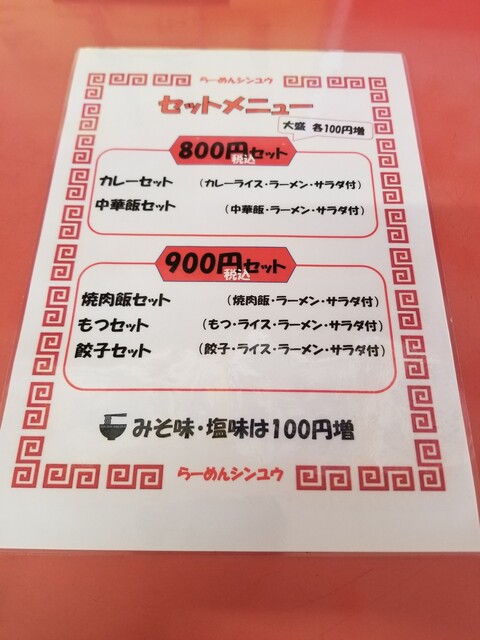 らーめんシンユウ
セットメニュー
大盛 各100円増
800円セット
税込
カレーセット (カレーライス・ラーメン・サラダ付)
中華飯セット (中華飯・ラーメン・サラダ付)
900円セット
税込
焼肉飯セット (焼肉飯・ラーメン・サラダ付)
もつセット (もつ・ライス・ラーメン・サラダ付)
餃子セット (餃子・ライス・ラーメン・サラダ付)
みそ味・塩味は100円増
らーめんシンユウ